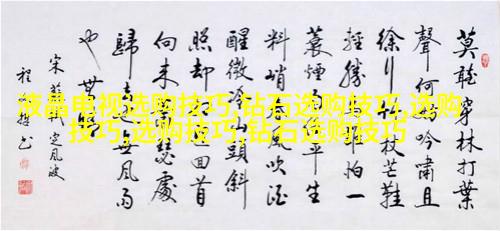 液晶电视选购技巧,钻石选购技巧,选购
技巧,选购技巧,钻石选购技巧
莫聽穿林打葉
聲何吟嘯且
徐行杖芒鞋
輕勝怕一
蓑煙平生
料峭風吹酒
醒微冷山頭斜
照却回首
向来處
歸無風雨
也無
宋蘇定風波
程